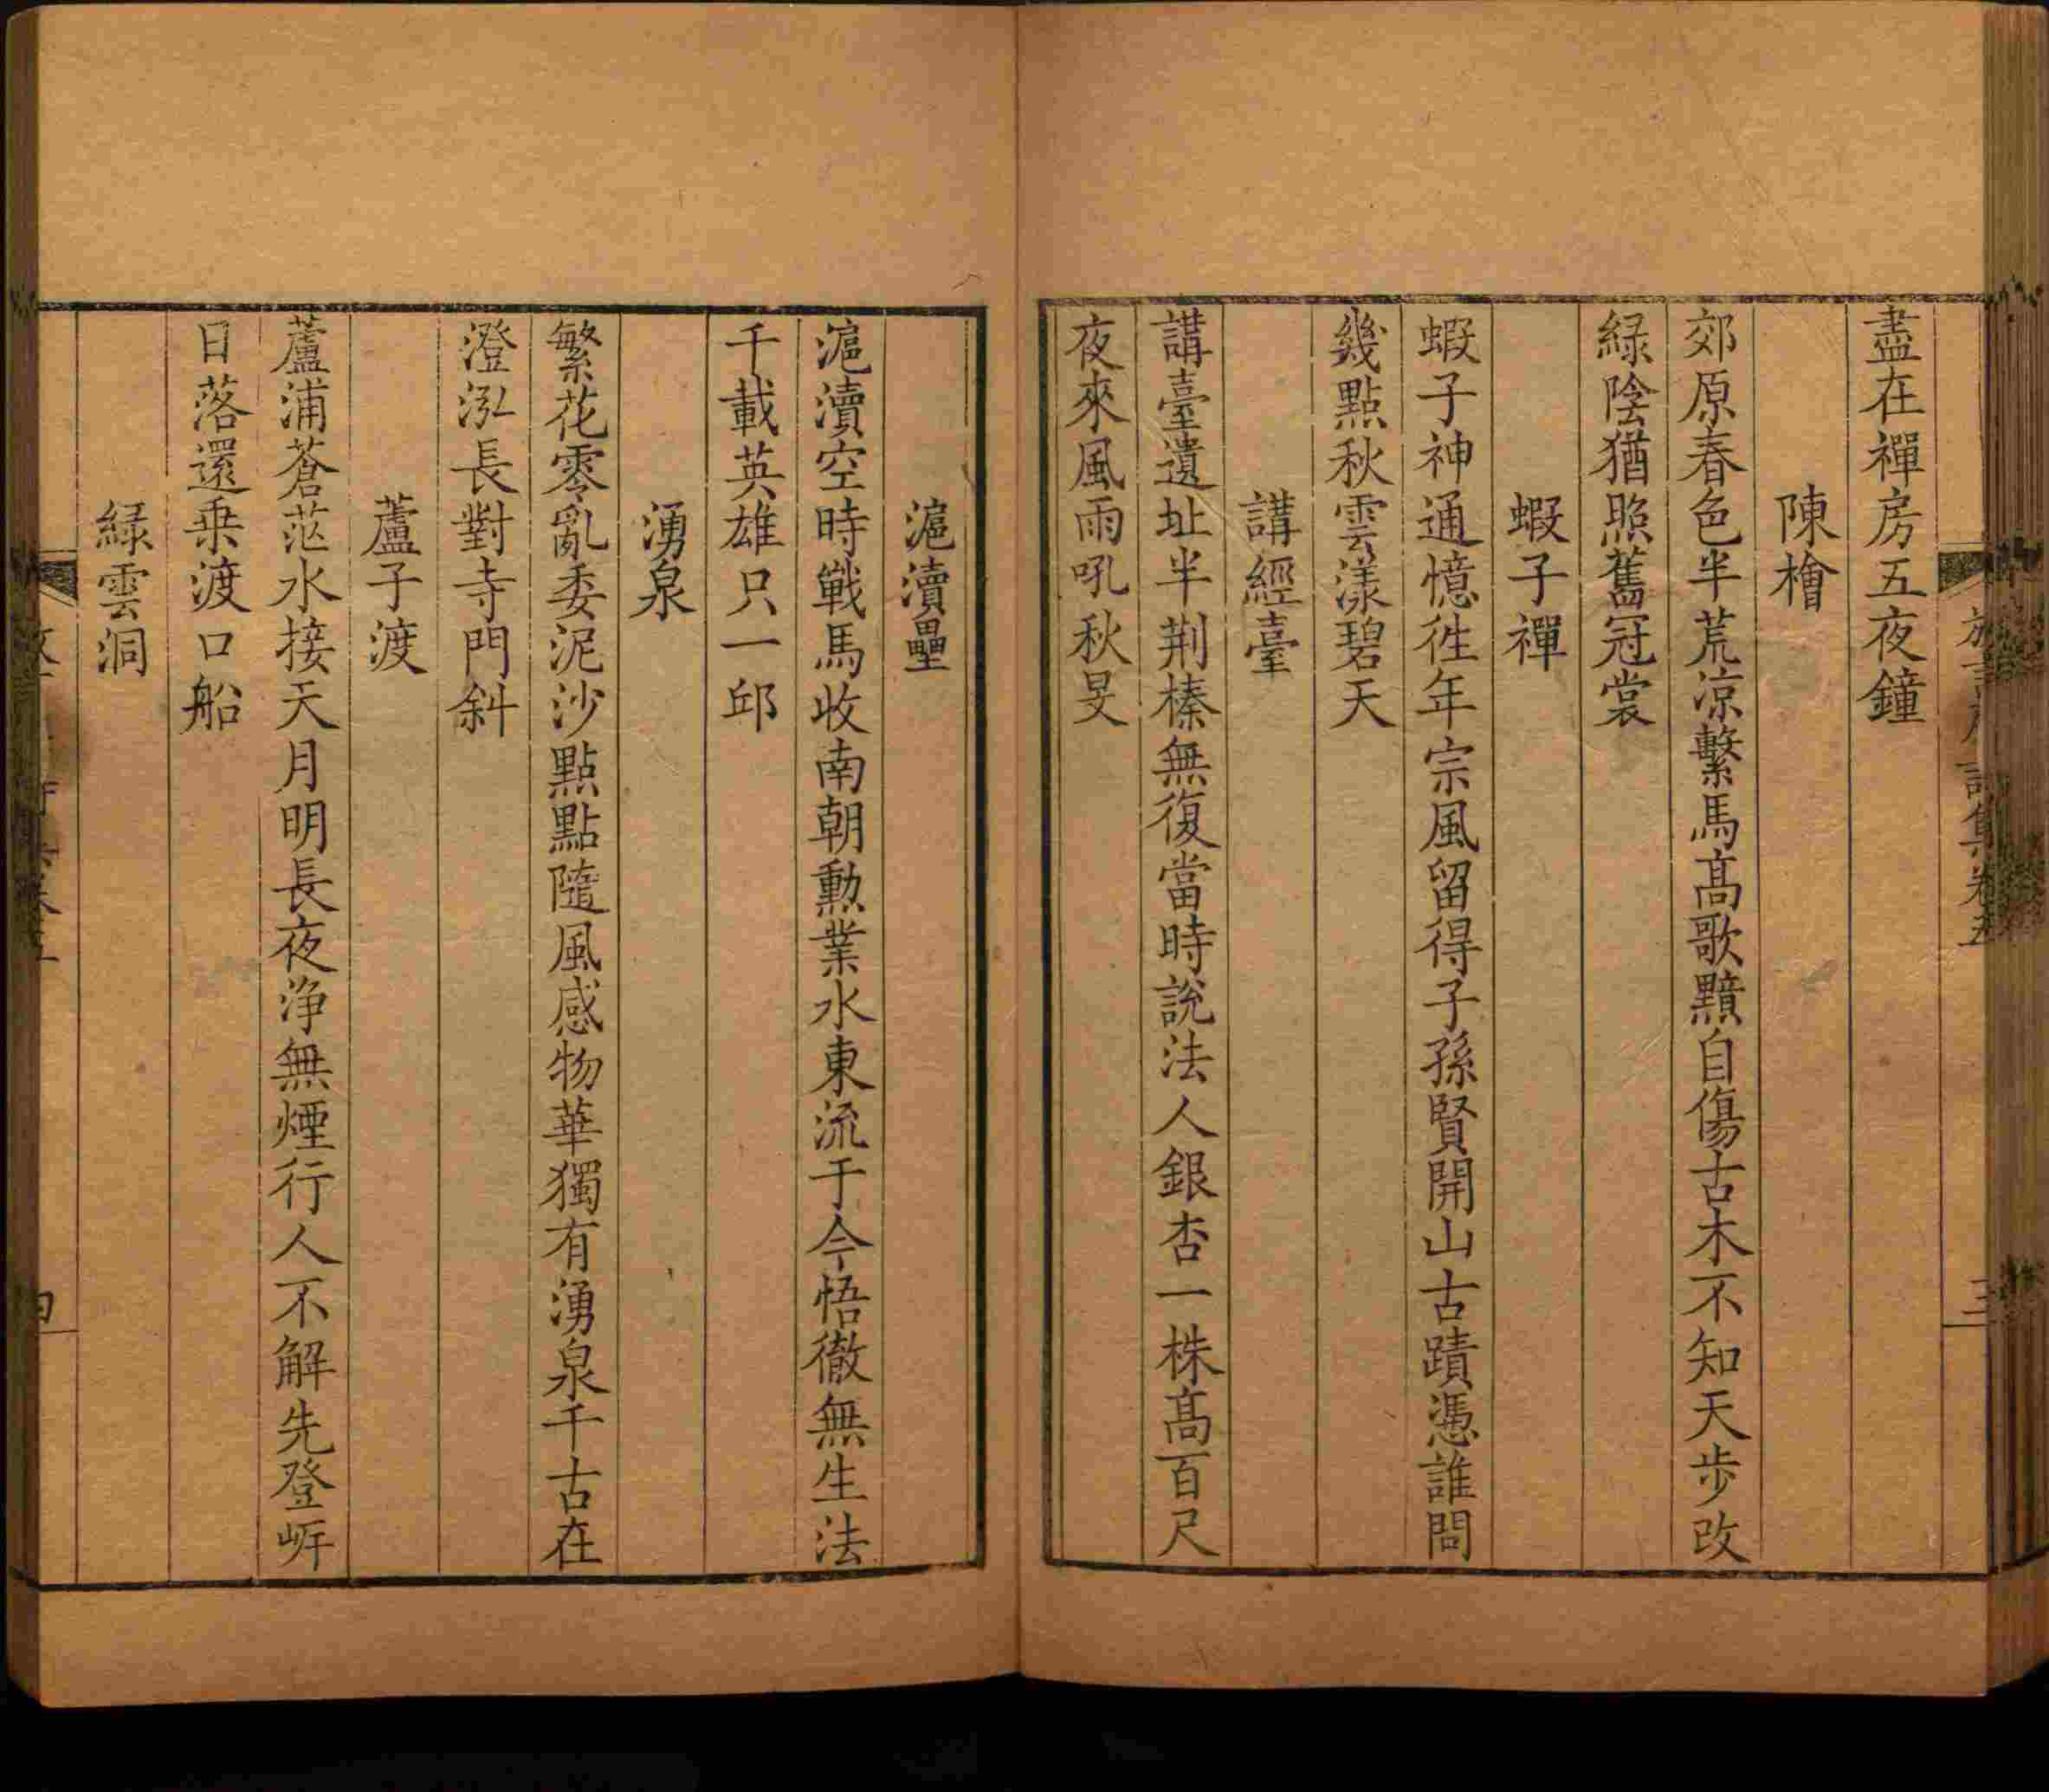 盡在禪房五夜鐘
陳檜
郊原春色半荒凉繫馬髙歌黯自傷古木不知天步改
緑陰猶照舊冠裳
蝦子禪
蝦子神通憶徃年宗風留得子孫賢開山古蹟憑誰問
幾點秋雲漾碧天
講經臺
講臺遺址半荆榛無復當時說法人銀杏一株髙百尺
夜來風雨吼秋旻
滬瀆壘
滬瀆空時戰馬收南朝勳業水東流于今悟徹無生法
千載英雄只一邱
湧泉
繁花零亂委泥沙點點隨風感物華獨有湧泉千古在
澄泓長對寺門斜
蘆子渡
蘆浦蒼茫水接天月明長夜浄無煙行人不解先登岸
日落還乗渡口船
緑雲洞